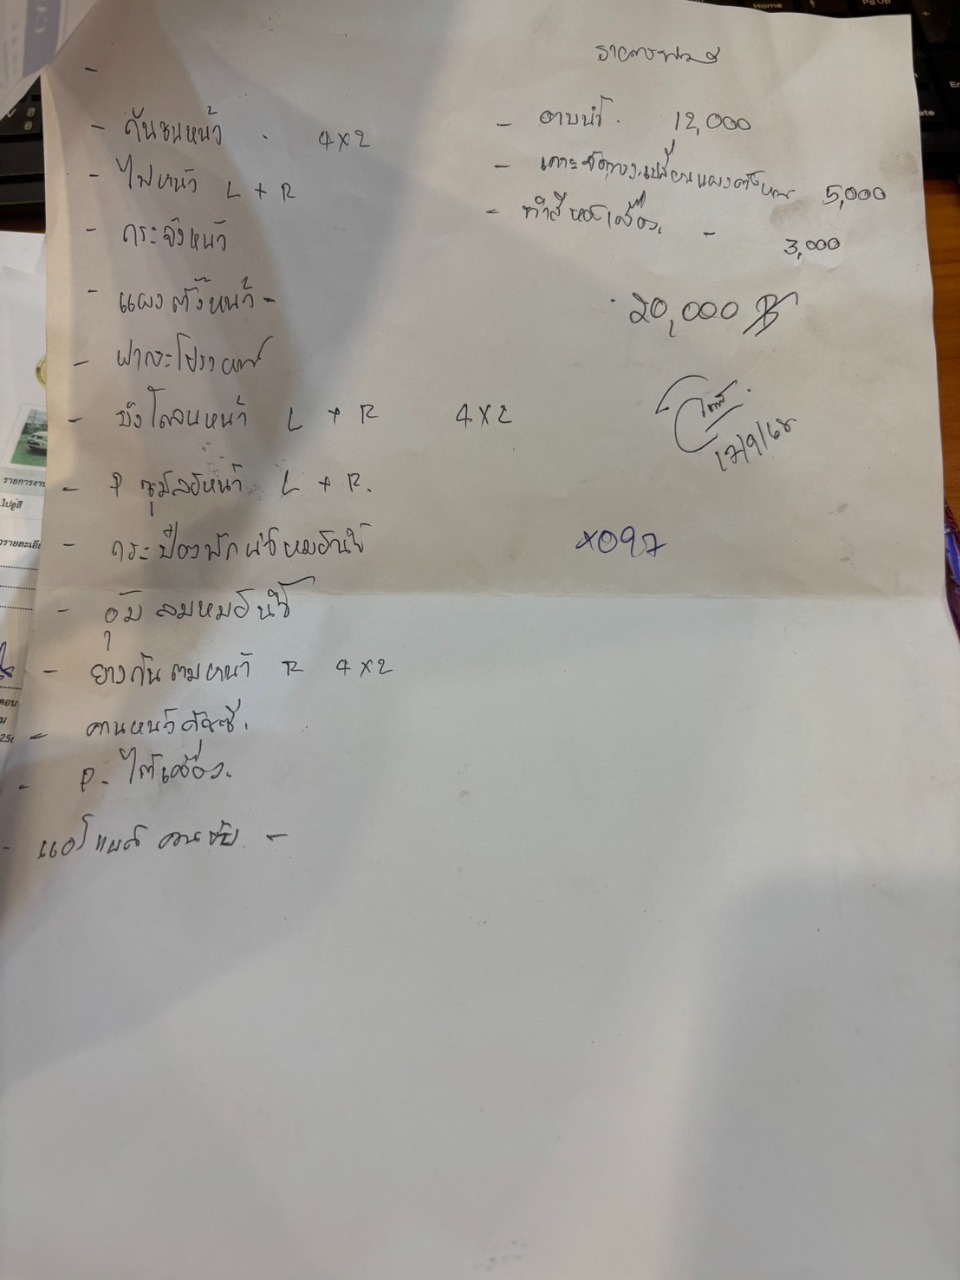 - กันชนหน้า 4x2
- ไฟหน้า L + R
- กระจังหน้า
- แผงตั้งหน้า -
- ฝากระโปรงหน้า
- บังโคลนหน้า L + R 4x2
- P ซุ้มล้อหน้า L + R.
- กระป๋องพักน้ำหม้อน้ำ
- อุ้มลมหม้อน้ำ
- ยางกันตามหน้า R 4x2
- คานหน้าคัสซี.
- P. ใต้เครื่อง.
- แอร์แบค คนขับ. -
- อาบน้ำ. 12,000
- เคาะ เปลี่ยนแผงตั้งหน้า 5,000
- ทำสีห้องเครื่อง. - 3,000
20,000 ฿
17/9/68
x097